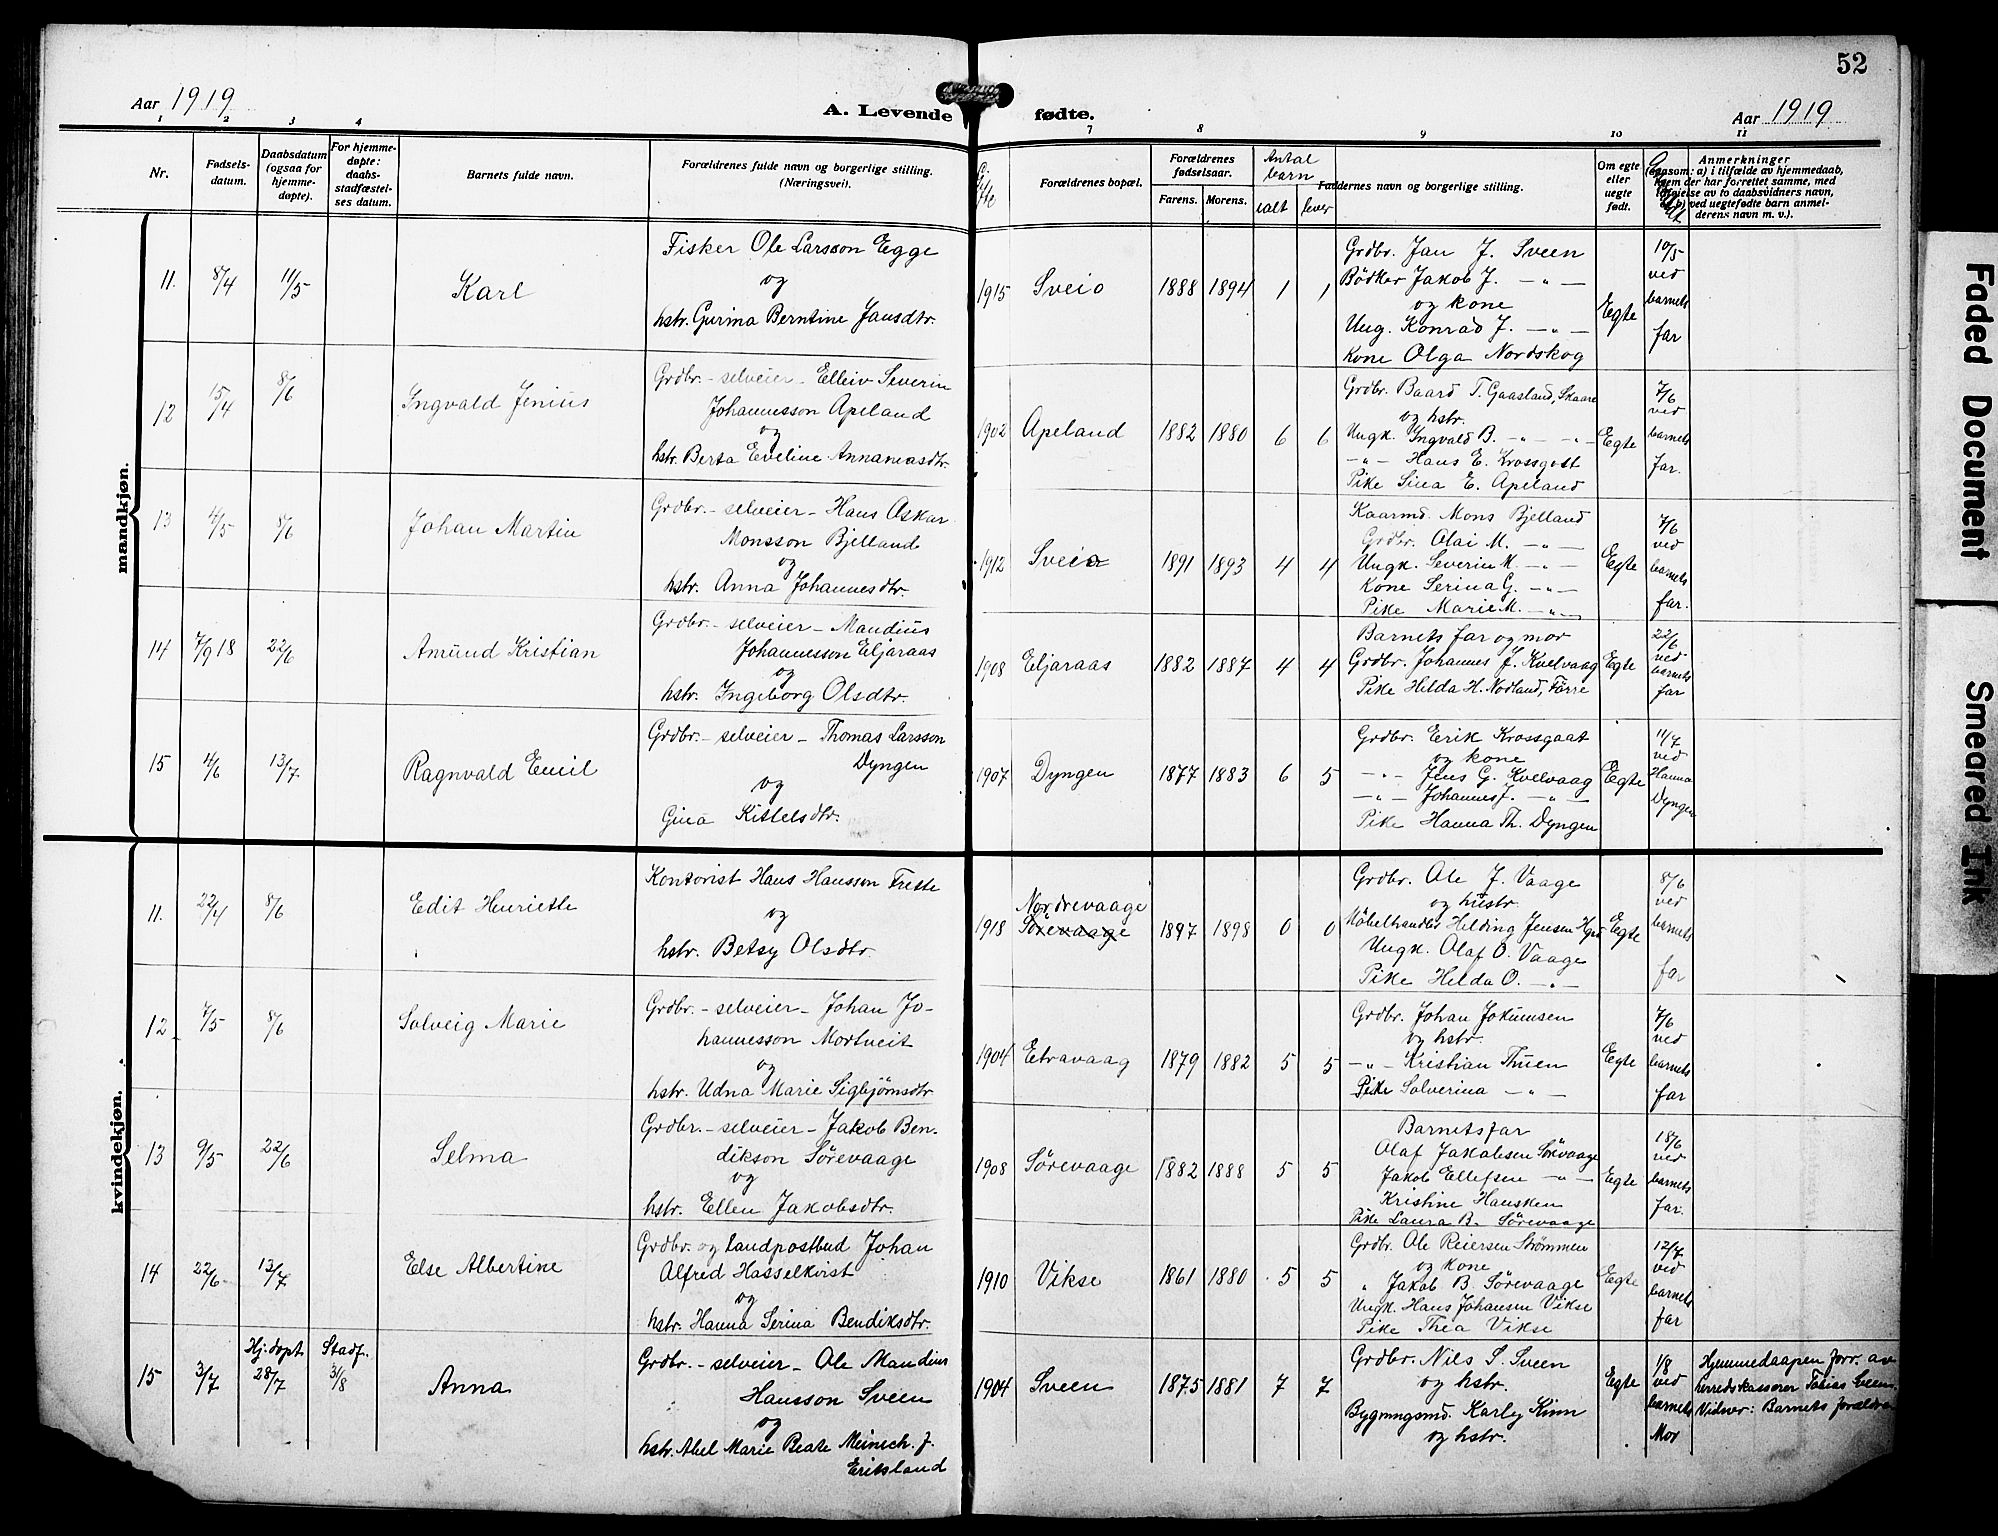 52
Aar 1919
A. Levende fødte.
Aar 1919
1 2 3 4 7 8 9 10 11
Nr.
Fødsels-
datum.
Daabsdatum
(ogsaa for
hjemme-
døpte).
For hjemme-
døpte:
daabs-
stadfæstel-
ses datum.
Barnets fulde navn.
Forældrenes fulde navn og borgerlige stilling.
(Næringsvei).
Forældrenes bopæl.
Forældrenes
fødselsaar.
Farens. Morens.
Antal
barn
ialt lever
Faddernes navn og borgerlige stilling.
Om egte
eller
uegte
født.
Anmerkninger
(saasom: a) i tilfælde av hjemmedaab,
hvem der har forrettet samme, med
tilføielse av to daabsvidners navn,
b) ved uegtefødte barn anmel-
derens navn m. v.).
mandkjøn.
11. 8/4 11/5 Karl
Fisker Ole Larsson Egge
og
hstr. Gurina Berntine Jansdtr.
1915 Sveio 1888 1894 1 1
Grdbr. Jan J. Sveen
Bödker Jakob J. — „ —
og kone
Ung. Konrad J. — „ —
Kone Olga Nordskog
Egte
10/5
ved
barnets
far
12 15/4 8/6 Ingvald Jenius
Grdbr. - selveier - Elleiv Severin
Johannesson Apeland
og
hstr. Berta Eveline Annaniasdtr.
1902 Apeland 1882 1880 6 6
Grdbr. Baard T. Gaasland, Skaare
og hstr.
Ungk. Ingvald B. — „ — „ —
— „ — Hans E. Krossgott
Pike Sina E. Apeland
Egte
7/6
ved
barnets
far.
13 4/5 8/6 Johan Martin
Grdbr. - selveier - Hans Oskar
Monsson Bjelland
og
hstr. Anna Johannesdtr.
1912 Sveio 1891 1893 4 4
Kaarmd. Mons Bjelland
Grdbr. Olai M. — „ —
Ungk. Severin M. — „ —
Kone Serina G. — „ —
Pike Marie M. — „ —
Egte
7/6
ved
barnets
far.
14 7/9 18 22/6 Amund Kristian
Grdbr. - selveier - Mandius
Johannesson Eljaraas
og
hstr. Ingeborg Olsdtr.
1908 Eljaraas 1882 1887 4 4
Barnets far og mor
Grdbr. Johannes J. Kvelvaag
Pike Hilda H. Nodland, Förre
Egte
22/6
ved
barnets
far
15 4/6 13/7 Ragnvald Emil
Grdbr. - selveier - Thomas Larsson
Dyngen
og
Gina Kittelsdtr.
1907 Dyngen 1877 1883 6 5
Grdbr. Erik Krossgaat
og kone
— „ — Jens G. Kvelvaag
— „ — Johannes J. — „ —
Pike Hanna Th. Dyngen
Egte
11/7
ved
Hanna
Dyngen
kvindekjøn.
11. 22/4 8/6 Edit Henriette
Kontorist Hans Hansson Trette
og
hstr. Betsy Olsdtr.
1918 Nordrevaage
Sörevaage 1897 1898 0 0
Grdbr. Ole J. Vaage
og hustr.
Möbelhandler Helding Jensen
Ungk. Olaf O. Vaage
Pike Helda O. — „ —
Egte
8/6
ved
barnets
far
12 7/5 8/6 Solveig Marie
Grdbr. - selveier - Johan Jo-
hannesson Mortveit
og
hstr. Udna Marie Sigbjørnsdtr
1904 Eltravaag 1879 1882 5 5
Grdbr. Johan Jokumsen
og hstr.
— „ — Kristian Thuen
Pike Solverina — „ —
Egte
7/6
ved
barnets
far
13 9/5 22/6 Selma
Grdbr. - selveier - Jakob Ben-
dikson Sörevaage
og
hstr. Ellen Jakobsdtr.
1908 Sörevaage 1882 1888 5 5
Barnets far
Olaf Jakobsen Sörevaage
Jakob Ellefsen — „ —
Kristine Hansken
Pike Laura B. Sörevaage
Egte
18/6
ved
barnets
far.
14 22/6 13/7 Else Albertine
Grdbr. og landpostbud Johan
Alfred Hasselkvist
og
hstr. Hanna Serina Bendiksdtr.
1910 Vikse 1861 1880 5 5
Grdbr. Ole Reiersen Strömmen
og kone
„ Jakob B. Sörevaage
Ungk. Hans Johansen Vikse
Pike Thea Vikse
Egte
12/7
ved
barnets
far
15 3/7 Hj: døpt 28/7 Stadf. 3/8 Anna
Grdbr. - selveier - Ole Mandius
Hansson Sveen
og
hstr. Abel Marie Beate Meinich. f.
Eritsland
1904 Sveen 1875 1881 7 7
Grdbr. Nils S. Sveen
og hstr.
Bygningsmd. Karly Kinn
og hstr.
Egte
1/8
ved
barnets
Mor
Hjemmedaapen forr. av
herredskasserer Tobias Sveen.
Vidner: Barnets forældre
Faded Document
Smeared Ink